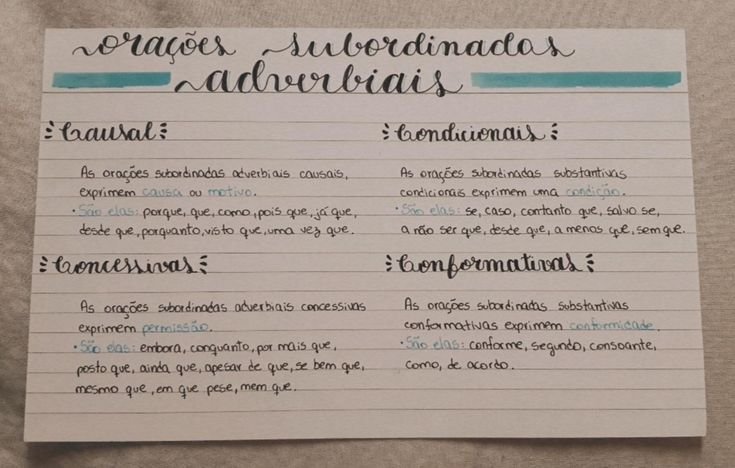 orações subordinadas
adverbiais
Causal
As orações subordinadas adverbiais causais,
exprimem causa ou motivo.
• São elas: porque, que, como, pois que, já que,
desde que, porquanto, visto que, uma vez que.
Condicionais
As orações subordinadas substantivas
condicionais exprimem uma condição.
• São elas: se, caso, contanto que, salvo se,
a não ser que, desde que, a menos que, sem que.
Concessivas
As orações subordinadas adverbiais concessivas
exprimem permissão.
• São elas: embora, conquanto, por mais que,
posto que, ainda que, apesar de que, se bem que,
mesmo que, em que pese, nem que.
Conformativas
As orações subordinadas substantivas
conformativas exprimem conformidade.
• São elas: conforme, segundo, consoante,
como, de acordo.